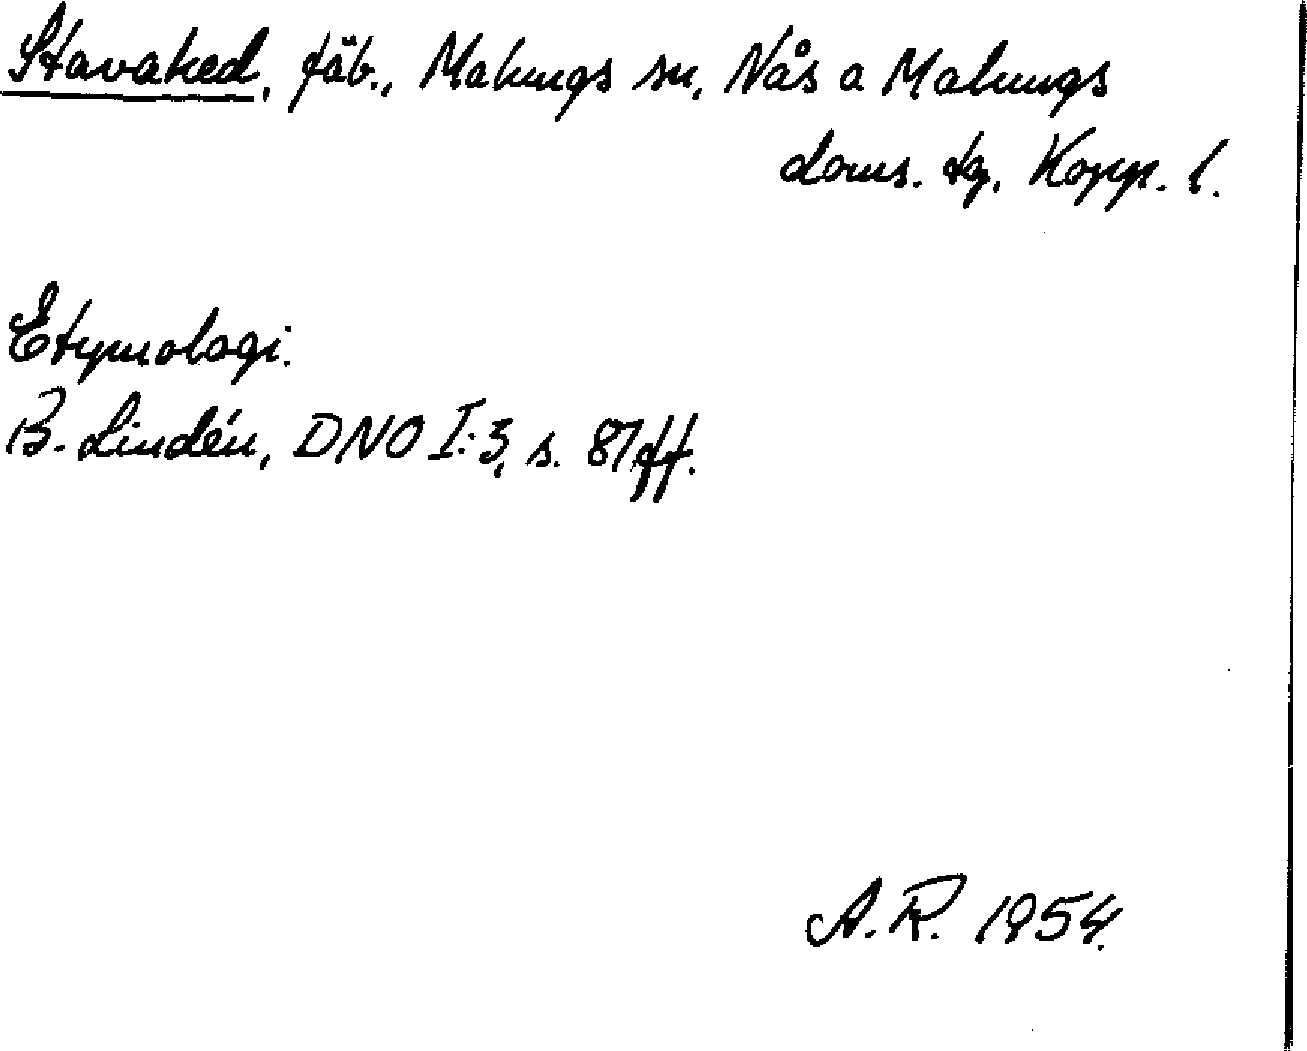 Stavahed, fäb., Malungs sn, Nås o Malungs
doms. tg, Kopp. l.
Etymologi.
B. Lindén, DNO I:3, s. 87 ff.
A.R. 1954.